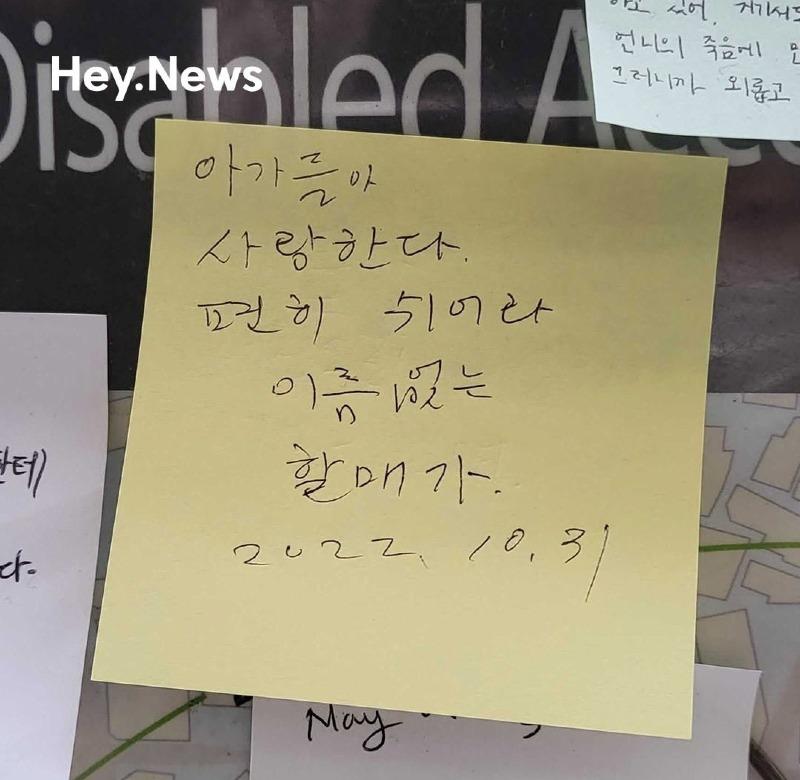 Disabled Acce
Hey.News
있어. 거기서도
언니의 죽음에
그러니까 외롭고
아가들아
사랑한다.
편히 쉬어라
이름 없는
할매가.
2022. 10. 31
한테
다.
May